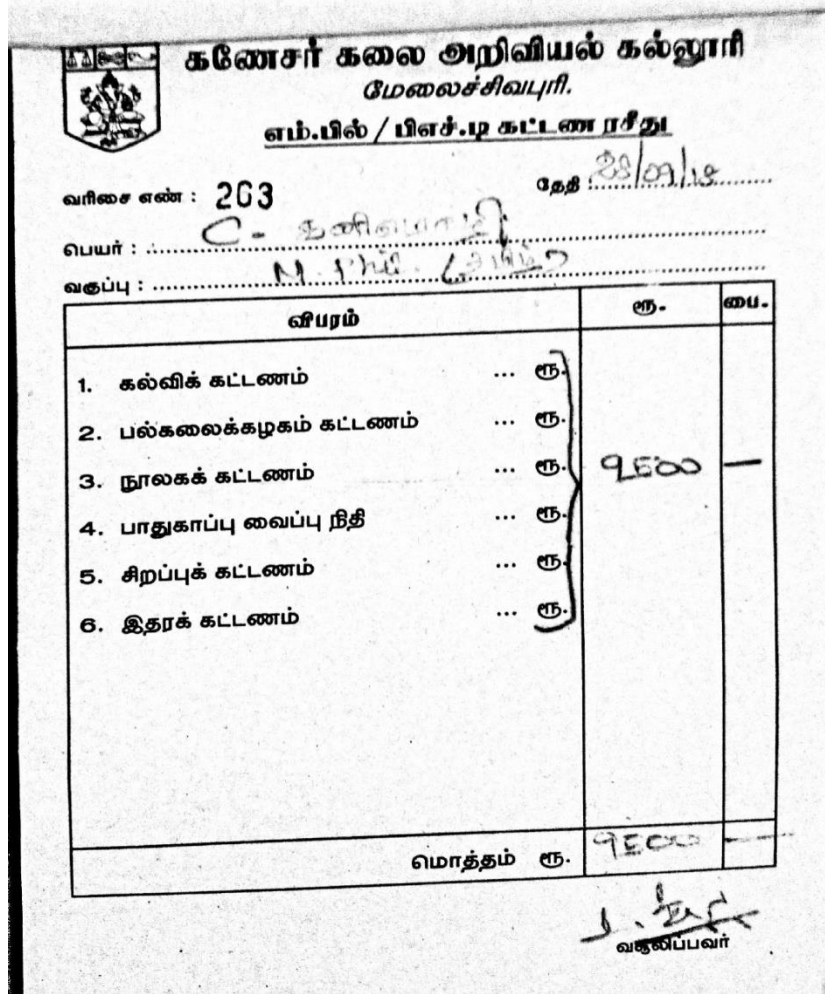 கணேசர் கலை அறிவியல் கல்லூரி
மேலைச்சிவபுரி.
எம்.பில் / பிஎச்.டி கட்டண ரசீது
வரிசை எண் : 263 தேதி :
பெயர் : C. கனிமொழி
வகுப்பு : M. Phil. (தமிழ்)
விபரம் ரூ. பை.
1. கல்விக் கட்டணம் ... ரூ.
2. பல்கலைக்கழகம் கட்டணம் ... ரூ.
3. நூலகக் கட்டணம் ... ரூ. 9500 —
4. பாதுகாப்பு வைப்பு நிதி ... ரூ.
5. சிறப்புக் கட்டணம் ... ரூ.
6. இதரக் கட்டணம் ... ரூ.
மொத்தம் ரூ. 9500 —
வசூலிப்பவர்